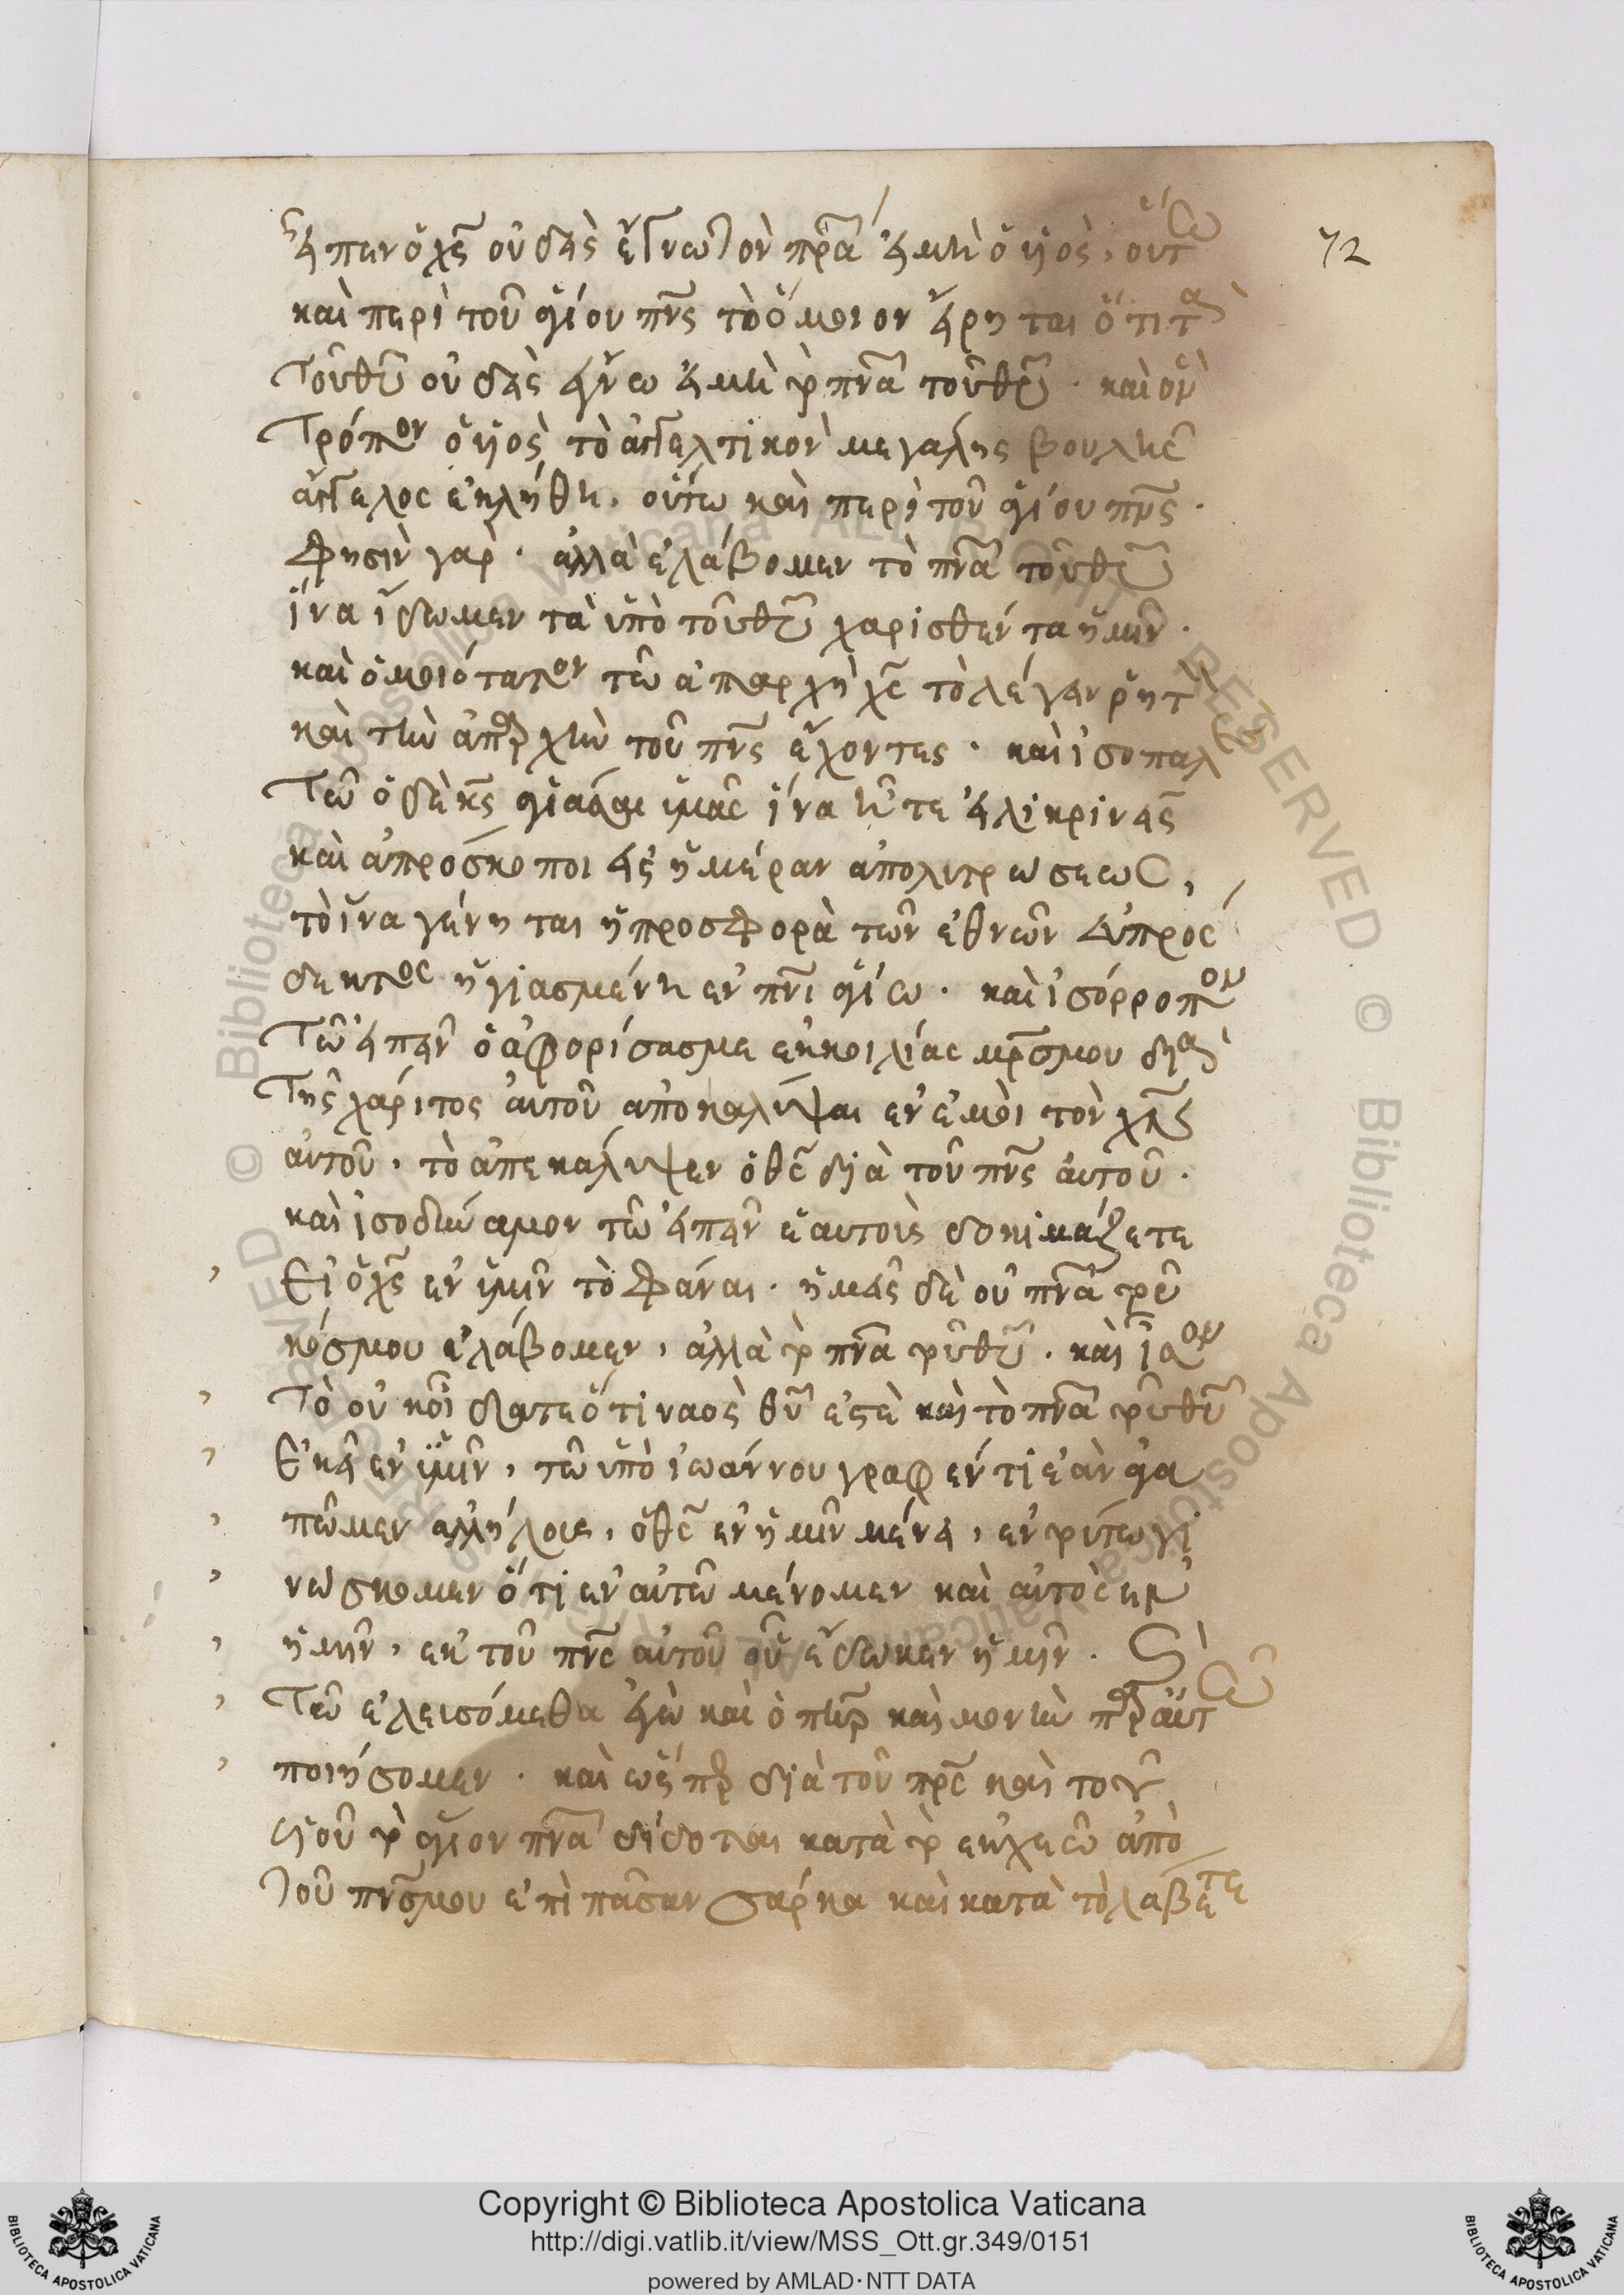 εἶπεν ὁ χς οὐδεὶς ἔγνω τὸν πρα εἰ μὴ ὁ υἱός, οὕτω
72
καὶ περὶ τοῦ ἁγίου πνς τὸ ὅμοιον εἴρηται ὅτι τὰ
τοῦ θυ οὐδεὶς εἶδεν εἰ μὴ τὸ πνα τοῦ θυ · καὶ ὃν
τρόπον ὁ υἱὸς τὸ ἀγγελτικὸν μεγάλης βουλῆς
ἄγγελος ἐκλήθη, οὕτω καὶ περὶ τοῦ ἁγίου πνς ·
φησὶν γάρ · ἀλλὰ ἐλάβομεν τὸ πνα τοῦ θυ
ἵνα ἴδωμεν τὰ ὑπὸ τοῦ θυ χαρισθέντα ἡμῖν ·
καὶ ὁμοιότατον τῶ ἀπαρχὴ χς τὸ λέγειν ῥητῶς
καὶ τὴν ἀπαρχὴν τοῦ πνς ἔχοντες · καὶ ἰσοπαλὲς
τῶ ὁ δὲ κς ἁγιάσαι ὑμᾶς ἵνα ἦτε εἰλικρινεῖς
καὶ ἀπρόσκοποι εἰς ἡμέραν ἀπολυτρώσεως,
τὸ ἵνα γένηται ἡ προσφορὰ τῶν ἐθνῶν εὐπρόσ
δεκτος ἡγιασμένη ἐν πνι ἁγίω · καὶ ἰσόρροπον
τῶ εἰπεῖν ὁ ἀφορίσας με ἐκ κοιλίας μρς μου διὰ
τῆς χάριτος αὐτοῦ ἀποκαλύψαι ἐν ἐμοὶ τὸν
αὐτοῦ, τὸ ἀπεκάλυψεν ὁ θς διὰ τοῦ πνς αὐτοῦ ·
καὶ ἰσοδύναμον τῶ εἰπεῖν ἑαυτοὺς δοκιμάζετε
εἰ ὁ χς ἐν ὑμῖν τὸ φάναι · ἡμεῖς δὲ οὐ πνα τοῦ
κόσμου ἐλάβομεν, ἀλλὰ τὸ πνα τοῦ θυ · καὶ ἴσον
τὸ οὐκ οἴδατε ὅτι ναὸς θυ ἐστὲ καὶ τὸ πνα τοῦ θυ
οἰκεῖ ἐν ὑμῖν, τῶ ὑπὸ ἰωάννου γραφέντι ἐὰν ἀγα
πῶμεν ἀλλήλους, ὁ θς ἐν ἡμῖν μένει, ἐν τούτω γι
νώσκομεν ὅτι ἐν αὐτῶ μένομεν καὶ αὐτὸς ἐν
ἡμῖν, ἐκ τοῦ πνς αὐτοῦ οὗ ἔδωκεν ἡμῖν ·
τῶ ἐλευσόμεθα ἐγὼ καὶ ὁ πηρ καὶ μονὴν παρ αὐτῶ
ποιήσομεν · καὶ ὥσπερ διὰ τοῦ πρς καὶ τοῦ
υἱοῦ τὸ ἅγιον πνα δίδοται κατὰ τὸ ἐκχεῶ ἀπὸ
τοῦ πνς μου ἐπὶ πᾶσαν σάρκα καὶ κατὰ τὸ λάβετε
Copyright © Biblioteca Apostolica Vaticana
http://digi.vatlib.it/view/MSS_Ott.gr.349/0151
powered by AMLAD·NTT DATA
BIBLIOTECA APOSTOLICA VATICANA
BIBLIOTECA APOSTOLICA VATICANA